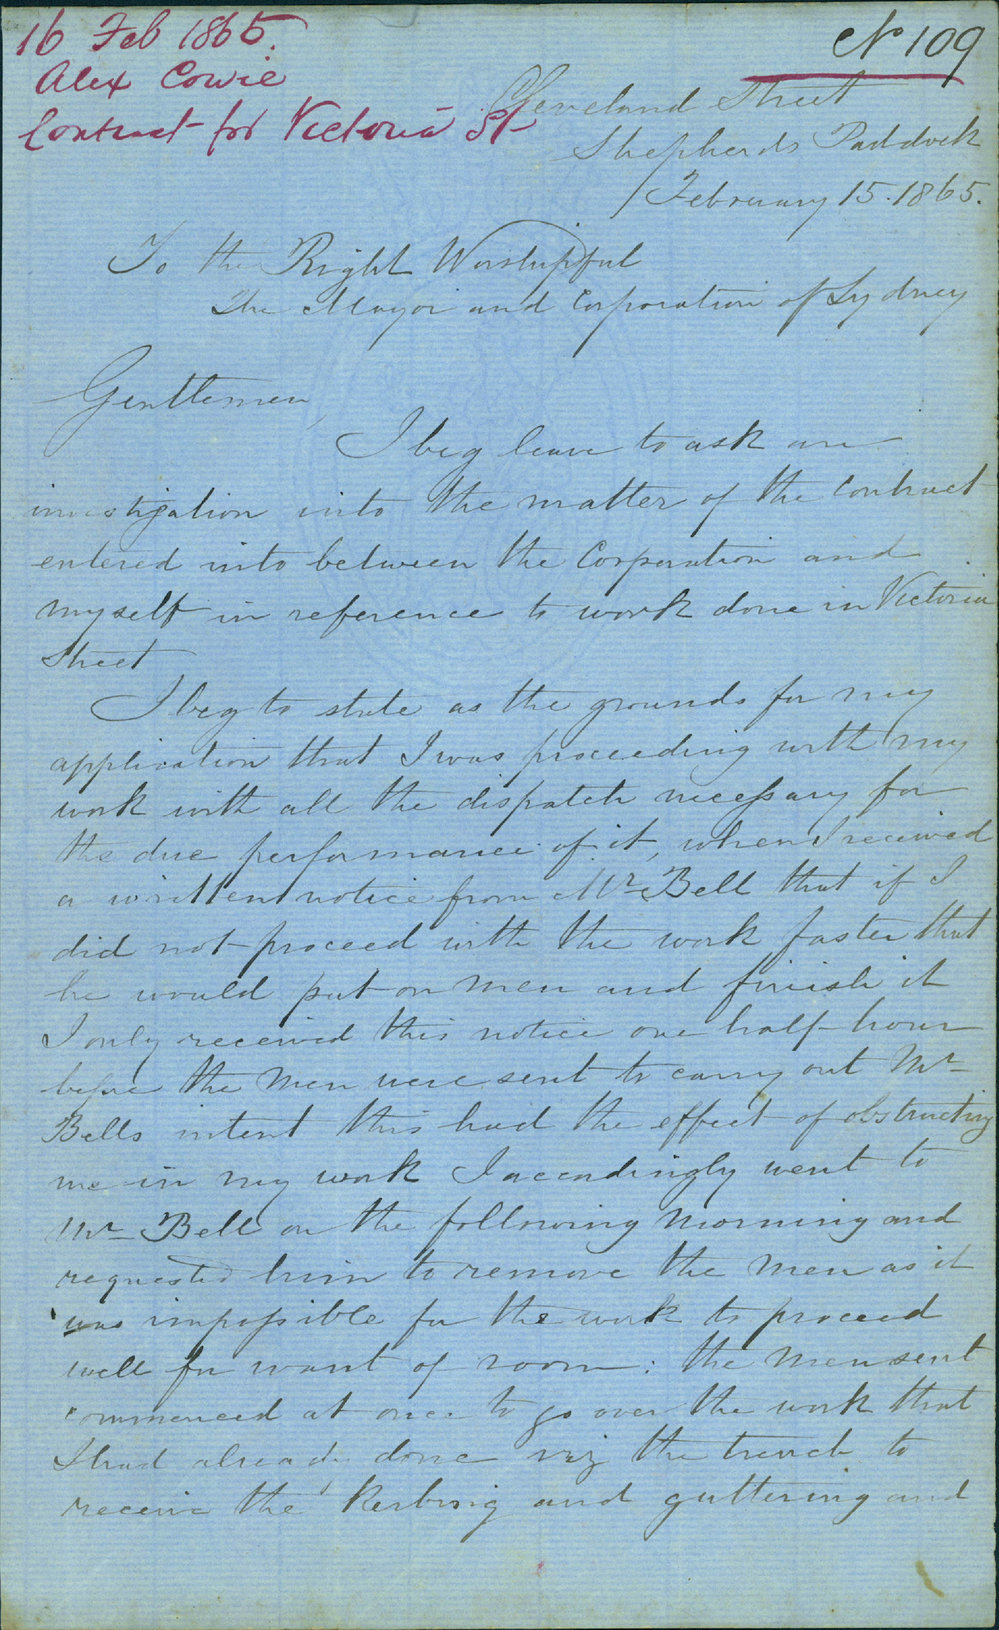 16 Feb 1865.
Alex Cowie
Contract for Victoria St
No 109
Cleveland Street
Shepherds Paddock
February 15. 1865.
To the Right Worshipful
The Mayor and Corporation of Sydney
Gentlemen,
I beg leave to ask an
investigation into the matter of the Contract
entered into between the Corporation and
myself in reference to work done in Victoria
Street
I beg to state as the grounds for my
application that I was proceeding with my
work with all the dispatch necessary for
the due performance of it, when I received
a written notice from Mr Bell that if I
did not proceed with the work faster that
he would put on men and finish it
I only received this notice one half-hour
before the Men were sent to carry out Mr
Bells intent this had the effect of obstructing
me in my work I accordingly went to
Mr Bell on the following Morning and
requested him to remove the Men as it
was impossible for the work to proceed
well for want of room: the Men sent
commenced at once to go over the work that
I had already done viz the trench to
receive the Kerbing and guttering and